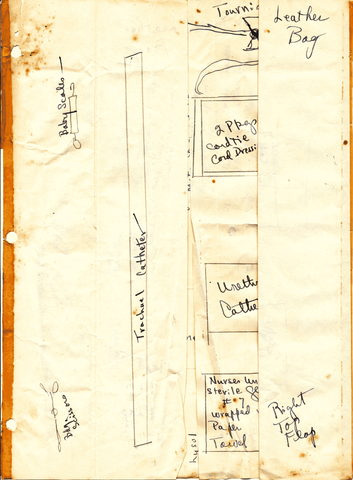 Leather
Bag
Tourni
Baby Scales
2 Pkgs
cord tie
Cord Dressi
Tracheal Catheter
Urethr
Cathe
Nurses
sterile
#7
wrapped
Paper
Towel
Right
Top
Flap